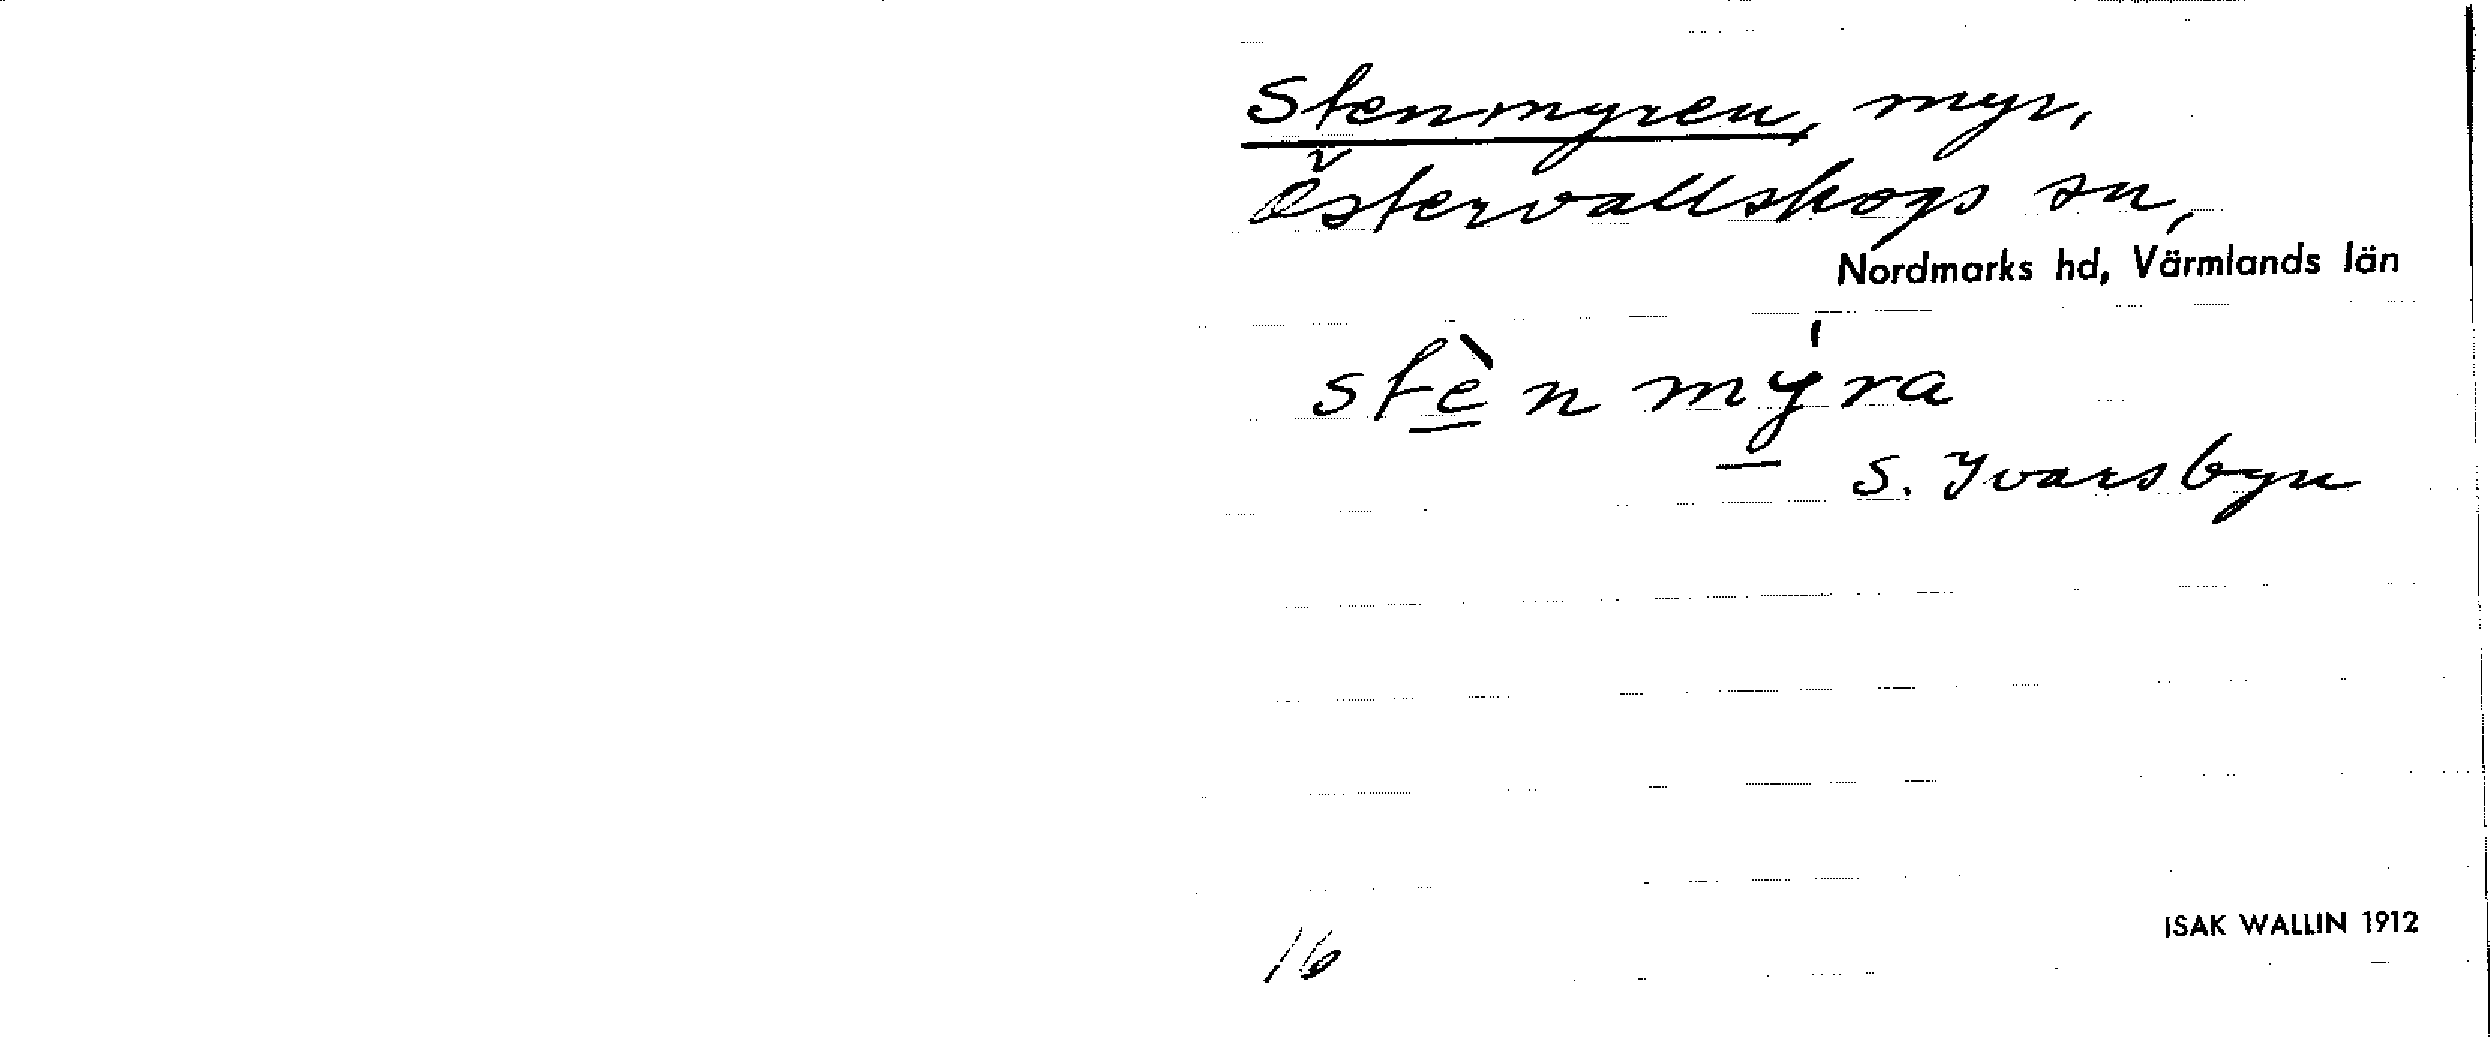 Stenmyren, myr,
Östervallskogs sn,
Nordmarks hd, Värmlands län
stè̱nmý̱ra
S. Ivarsbyn
ISAK WALLIN 1912
16